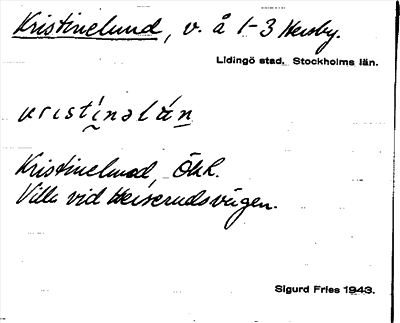 Kristinelund, v. å 1-3 Hersby.
Lidingö stad. Stockholms län.
Kristinelund, Ökk.
Villa vid Heiserudsvägen.
Sigurd Fries 1943.